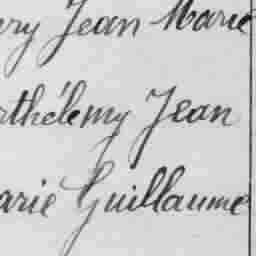 ry Jean Marie
rthélemy Jean
arie Guillaume